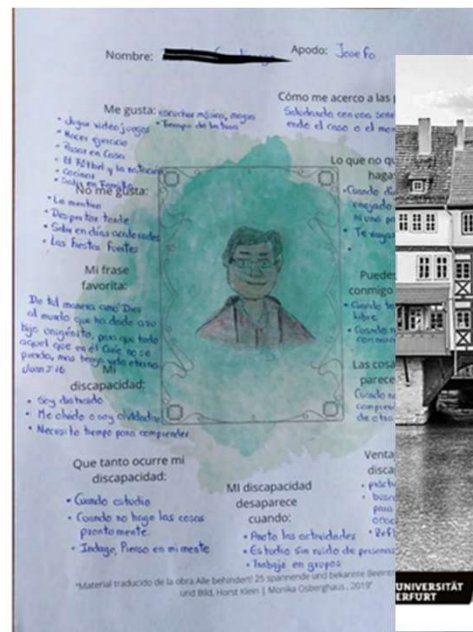 Nombre:
Apodo: Josefo
Me gusta: escuchar música, magia
• Jugar videojuegos • Tiempo de lectura
• Hacer ejercicio
• Pasar en Casa
• El Fútbol y la natación
• cocinar
• Salir en Familia
No me gusta:
• La mentira
• Despertar tarde
• Salir en días
• Las fiestas fuertes
Mi frase
favorita:
De tal manera amó Dios
al mundo que ha dado a su
hijo unigénito, para que todo
aquel que en él cree no se
pierda, mas tenga vida eterna.
Juan 3:16
Mi
discapacidad:
• Soy distraido
• Me olvido o soy olvidadizo
• Necesito tiempo para comprender
Que tanto ocurre mi
discapacidad:
• Cuando estudio
• Cuando no hago las cosas
prontamente.
• Indago, Pienso en mi mente
MI discapacidad
desaparece
cuando:
• Anoto las actividades
• Estudio sin ruido de personas
• Trabajo en grupos
Cómo me acerco a las
Saludando con una
endo el caso o el
Lo que no
haga
• Cuando
enojado
ni una
•
Puedes
conmigo
• Cuando
libre
• Cuando
Las cosa
parece
Cuando
de otra
Venta
disca
•
•
para
•
"Material traducido de la obra Alle behindert! 25 spannende und bekannte
und Bild, Horst Klein | Monika Osberghaus , 2019"
UNIVERSITÄT
ERFURT